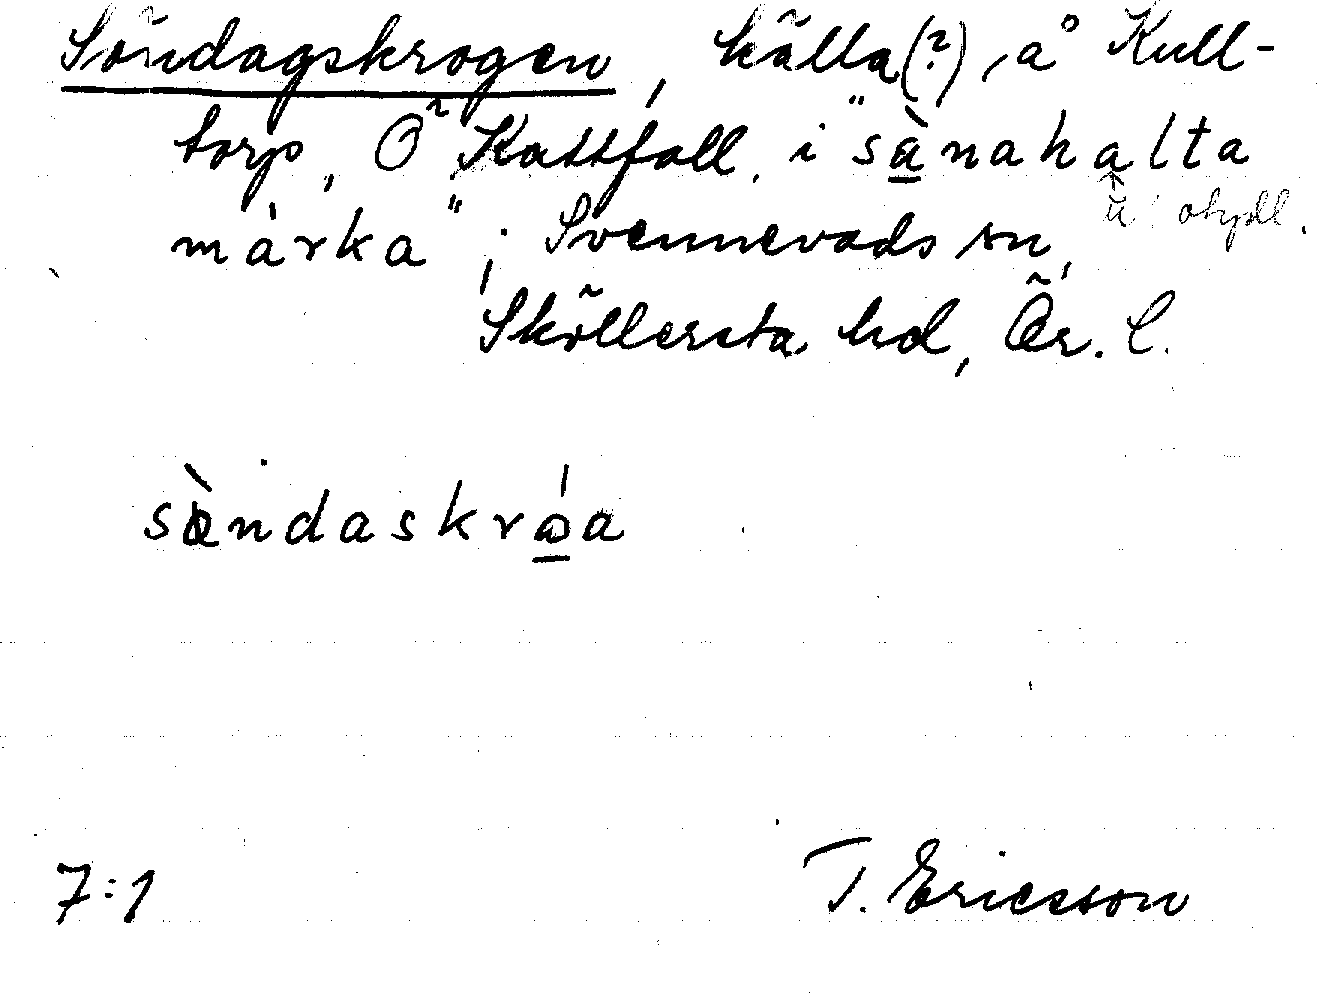 Söndagskrogen, källa(?), å Kull-
torp, Ö Kattfall, i "sànahalta
màrka"; Svennevads sn,
u otydl.
Sköllersta hd, Ör. l.
sàndaskróa
7:1
T. Ericsson